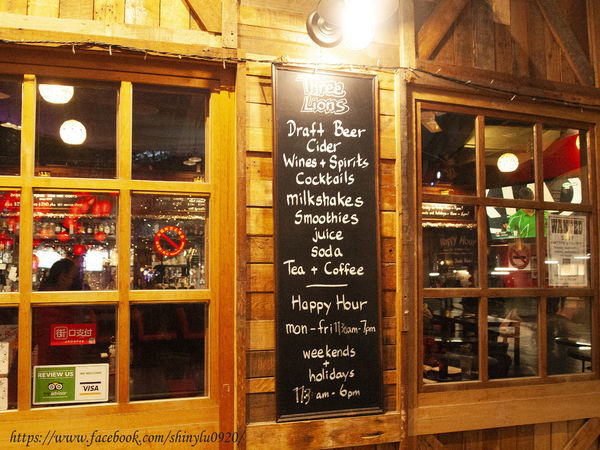 Three
Lions
Draft Beer
Cider
Wines + Spirits
Cocktails
milkshakes
Smoothies
juice
soda
Tea + Coffee
Happy Hour
mon - fri 11:30am-7pm
weekends
+
holidays
am - 6pm
街口支付
REVIEW US
VISA
Happy Hour
WANTED
https://www.facebook.com/shinylu0920/